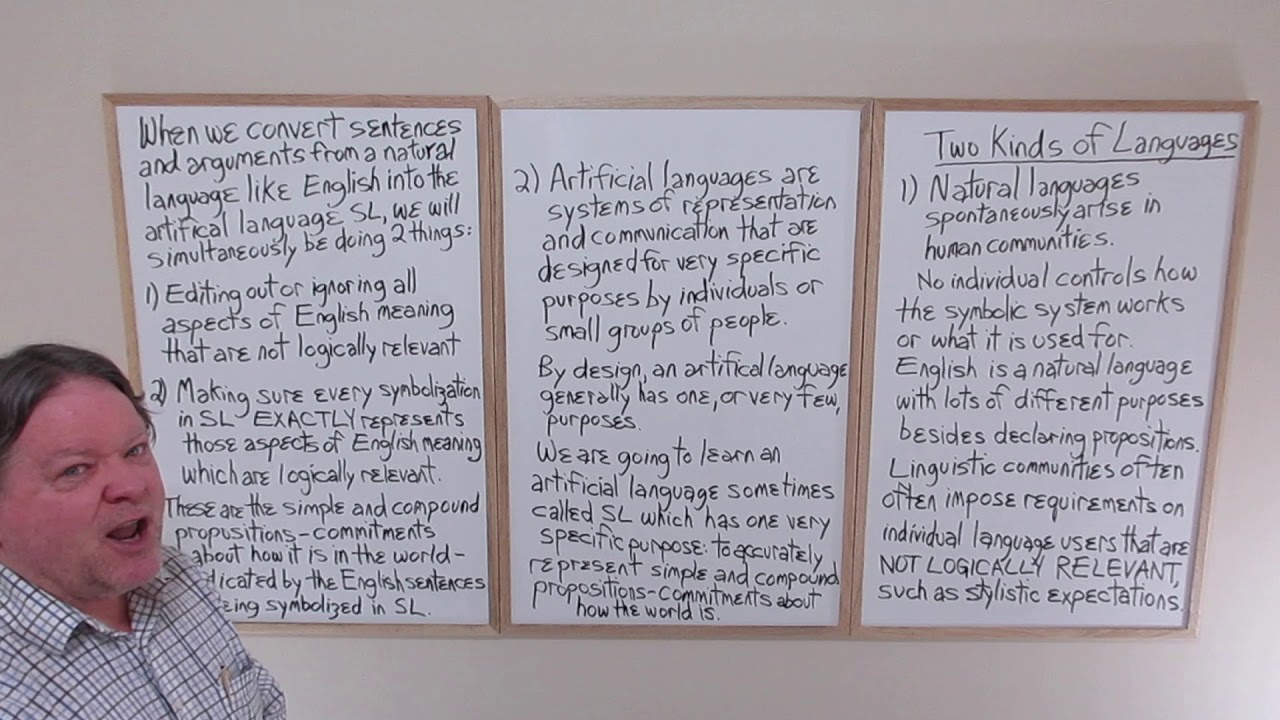 When we convert sentences
and arguments from a natural
language like English into the
artifical language SL, we will
simultaneously be doing 2 things:
1) Editing out or ignoring all
aspects of English meaning
that are not logically relevant
2) Making sure every symbolization
in SL EXACTLY represents
those aspects of English meaning
which are logically relevant.
These are the simple and compound
propositions-commitments
about how it is in the world-
dicated by the English sentences
eing symbolized in SL.
2) Artificial languages are
systems of representation
and communication that are
designed for very specific
purposes by individuals or
small groups of people.
By design, an artifical language
generally has one, or very few,
purposes.
We are going to learn an
artificial language sometimes
called SL which has one very
specific purpose: to accurately
represent simple and compound
propositions-commitments about
how the world is.
Two Kinds of Languages
1) Natural languages
spontaneously arise in
human communities.
No individual controls how
the symbolic system works
or what it is used for.
English is a natural language
with lots of different purposes
besides declaring propositions.
Linguistic communities often
often impose requirements on
individual language users that are
NOT LOGICALLY RELEVANT,
such as stylistic expectations.